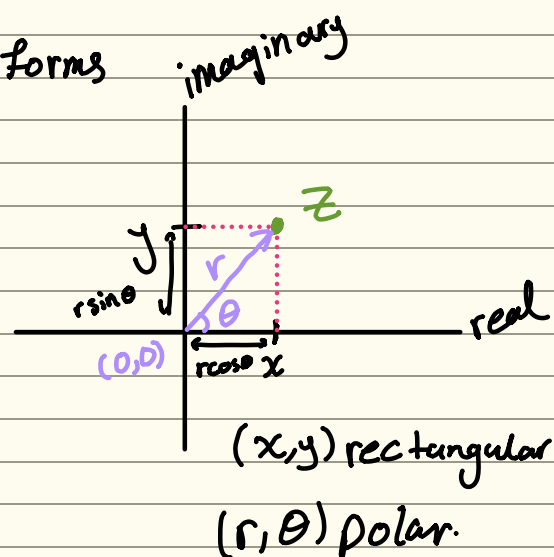 forms
imaginary
z
y
r
rsinθ
θ
real
(0,0)
rcosθ x
(x,y) rectangular
(r,θ) polar.